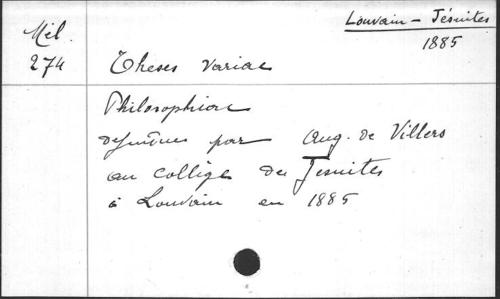 Mél.
274
Louvain - Jésuites
1885
Theses variae
Philosophiae
défendues par Aug. de Villers
au collège des Jesuites
à Louvain en 1885